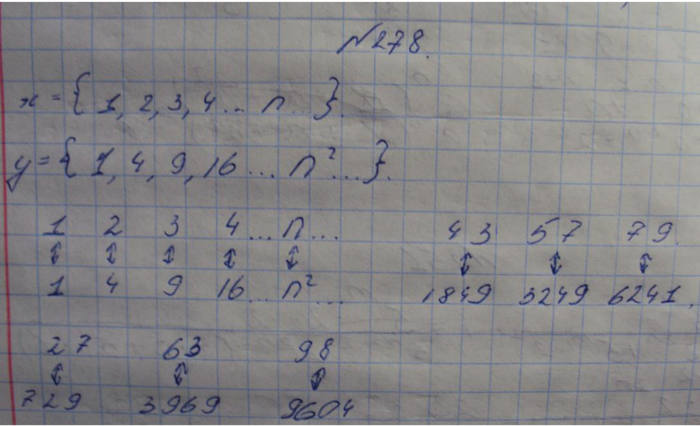 №278.
x = { 1, 2, 3, 4 ... n ... }.
y = { 1, 4, 9, 16 ... n² ... }.
1 2 3 4 ... n ... 43 57 79.
↕ ↕ ↕ ↕ ↕ ↕ ↕ ↕
1 4 9 16 ... n² ... 1849 3249 6241.
27 63 98
↕ ↕ ↕
729 3969 9604